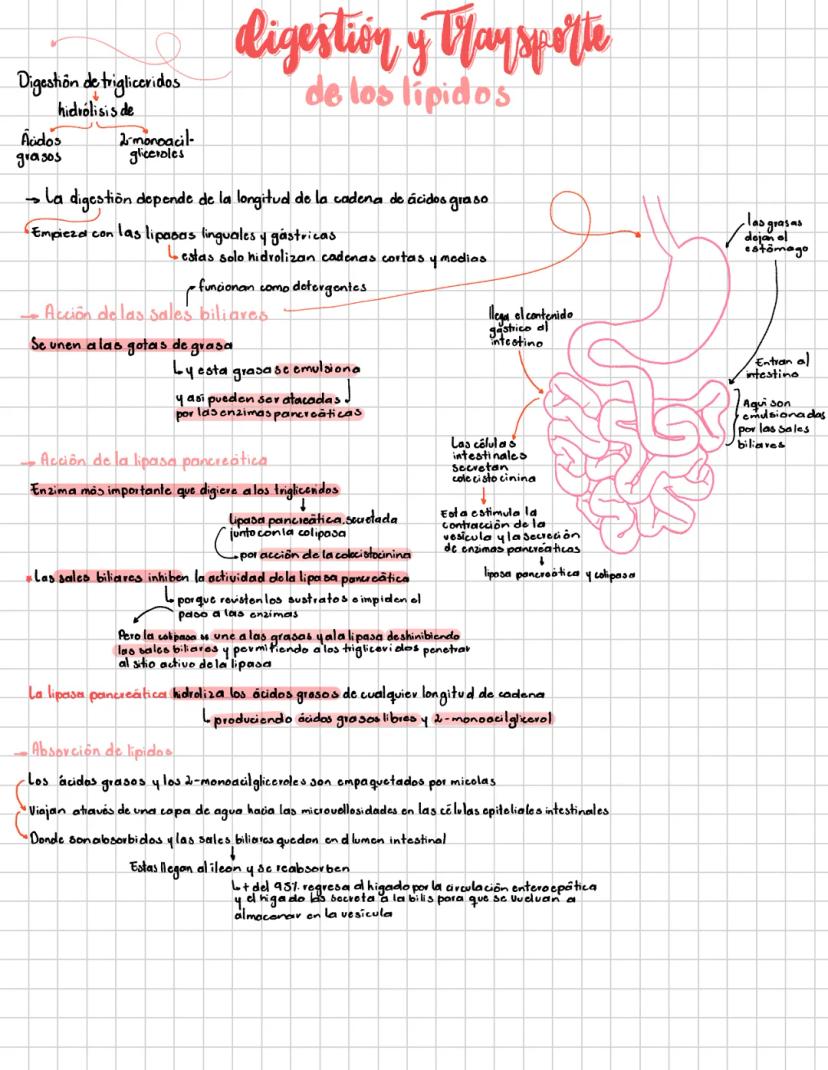 Digestión y Transporte
de los lípidos
Digestión de trigliceridos
hidrólisis de
Ácidos
grasos
2-monoacil-
gliceroles
→ La digestión depende de la longitud de la cadena de ácidos graso
Empieza con las lipasas linguales y gástricas
estas solo hidrolizan cadenas cortas y medias
funcionan como detergentes
→ Acción de las sales biliares
Se unen a las gotas de grasa
y esta grasa se emulsiona
y asi pueden ser atacadas
por las enzimas pancreáticas
las grasas
dejan el
estómago
llega el contenido
gástrico al
intestino
Entran al
intestino
Aqui son
emulsionadas
por las sales
biliares
Las células
intestinales
secretan
colecistocinina
Esta estimula la
contracción de la
vesícula y la secreción
de enzimas pancreáticas
lipasa pancreática y colipasa
→ Acción de la lipasa pancreática
Enzima más importante que digiere a los trigliceridos
lipasa pancreática, secretada
junto con la colipasa
por acción de la colecistocinina
*Las sales biliares inhiben la actividad de la lipasa pancreática
porque revisten los sustratos e impiden el
paso a las enzimas
Pero la colipasa se une a las grasas y a la lipasa deshinibiendo
las sales biliares y permitiendo a los trigliceridos penetrar
al sitio activo de la lipasa
La lipasa pancreática hidroliza los ácidos grasos de cualquier longitud de cadena
produciendo ácidos grasos libres y 2-monoacilglicerol
→ Absorción de lipidos
Los ácidos grasos y los 2-monoacilgliceroles son empaquetados por micelas
Viajan através de una capa de agua hacia las microvellosidades en las células epiteliales intestinales
Donde son absorbidos y las sales biliares quedan en el lumen intestinal
Estas llegan al ileon y se reabsorben
+ del 95% regresa al higado por la circulación enteroepática
y el higado las secreta a la bilis para que se vuelvan a
almacenar en la vesícula